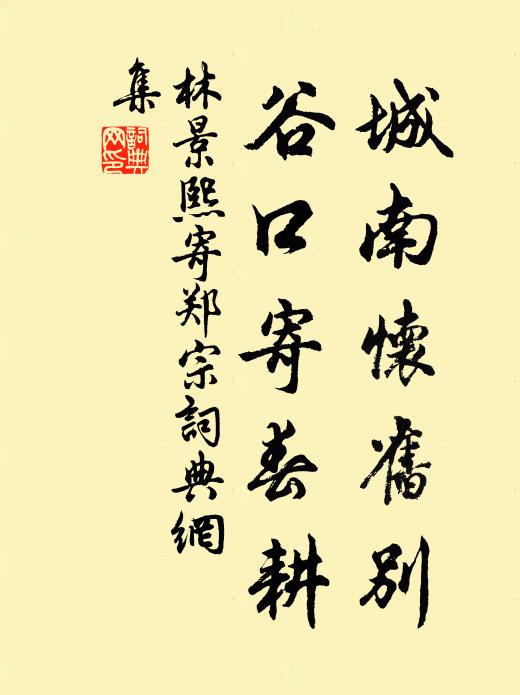 城南懷舊别
谷口寄春耕
林景熙寄郑宗詞典網
集
詞典
网印